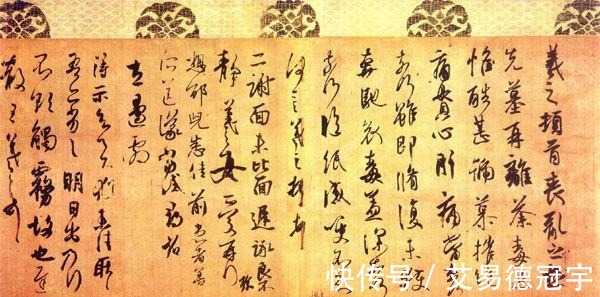 羲之頓首喪亂之極
先墓再離荼毒追
惟酷甚號慕摧絶
痛貫心肝痛當奈何
奈何雖即脩復未獲
奔馳哀毒益深奈何
奈何臨紙感哽不知
何言羲之頓首頓首
二謝面未比面遲詠良
不靜羲之女愛再拜
想邵兒悉佳前患者善
所送議當試尋省
左邊劇
得示知足下猶未佳耿耿
吾亦劣劣明日出乃行
不欲觸霧故也遲
散王羲之頓首
快传号 / 艾易德冠宇